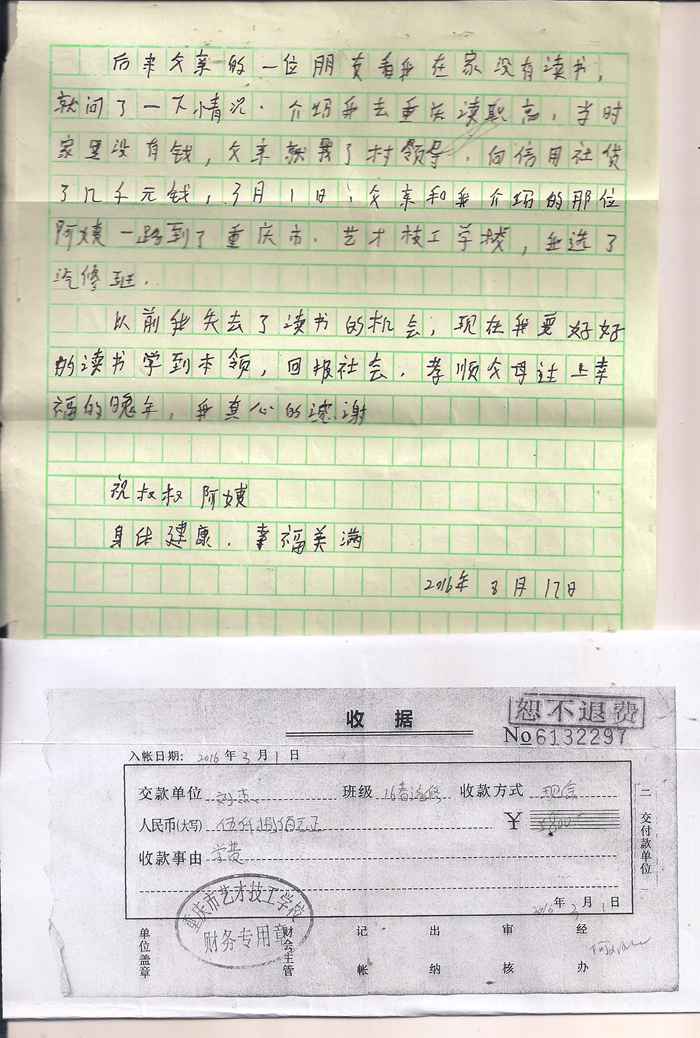 后来父亲的一位朋友看我在家没有读书，
就问了一下情况．介绍我去重庆读职高，当时
家里没有钱，父亲就找了村领导．向信用社贷
了几千元钱，3月1日，父亲和我介绍的那位
阿姨一路到了重庆市．艺才技工学校，我选了
汽修班．
以前我失去了读书的机会，现在我要好好
的读书学到本领，回报社会．孝顺父母过上幸
福的晚年，我真心的感谢
祝叔叔 阿姨
身体健康．幸福美满
2016年 3月17日
收据
恕不退费
No6132297
入帐日期：2016年3月1日
交款单位 刘杰 班级 16春汽修 收款方式 现金
人民币(大写) 伍仟捌佰元正 ¥ 5800
收款事由 学费
二 交付款单位
2016年3月1日
重庆市艺才技工学校
财务专用章
单位盖章 财会主管 记帐 出纳 审核 经办